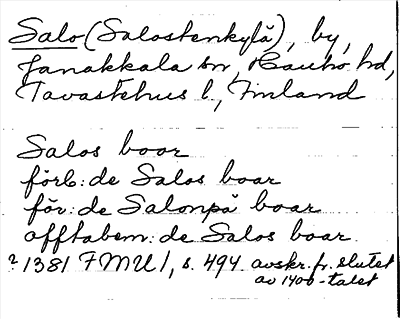 Salo (Salostenkylä), by,
Janakkala sn, Hauho hd,
Tavastehus l., Finland
Salos boar
förb: de Salos boar
för: de Salonpä boar
afftabem: de Salos boar
? 1381 FMU 1, s. 494 avskr. fr. slutet
av 1400-talet